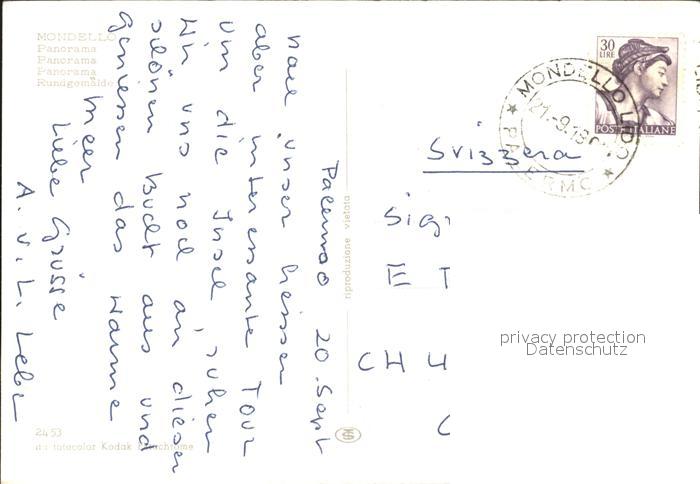 MONDELLO
Panorama
Panorama
Panorama
Rundgemälde
Palermo 20. Sept
nach unser heissen
aber interessante Tour
um die Insel, ruhen
wir uns noch an dieser
schönen Bucht aus und
geniessen das warme
Meer
Liebe Grüsse
A. u. L.
riproduzione vietata
30
LIRE
POSTE ITALIANE
MONDELLO LIDO
21.-9.
PALERMO
Svizzera
Sig
E T
CH
privacy protection
Datenschutz
2453
Kodak